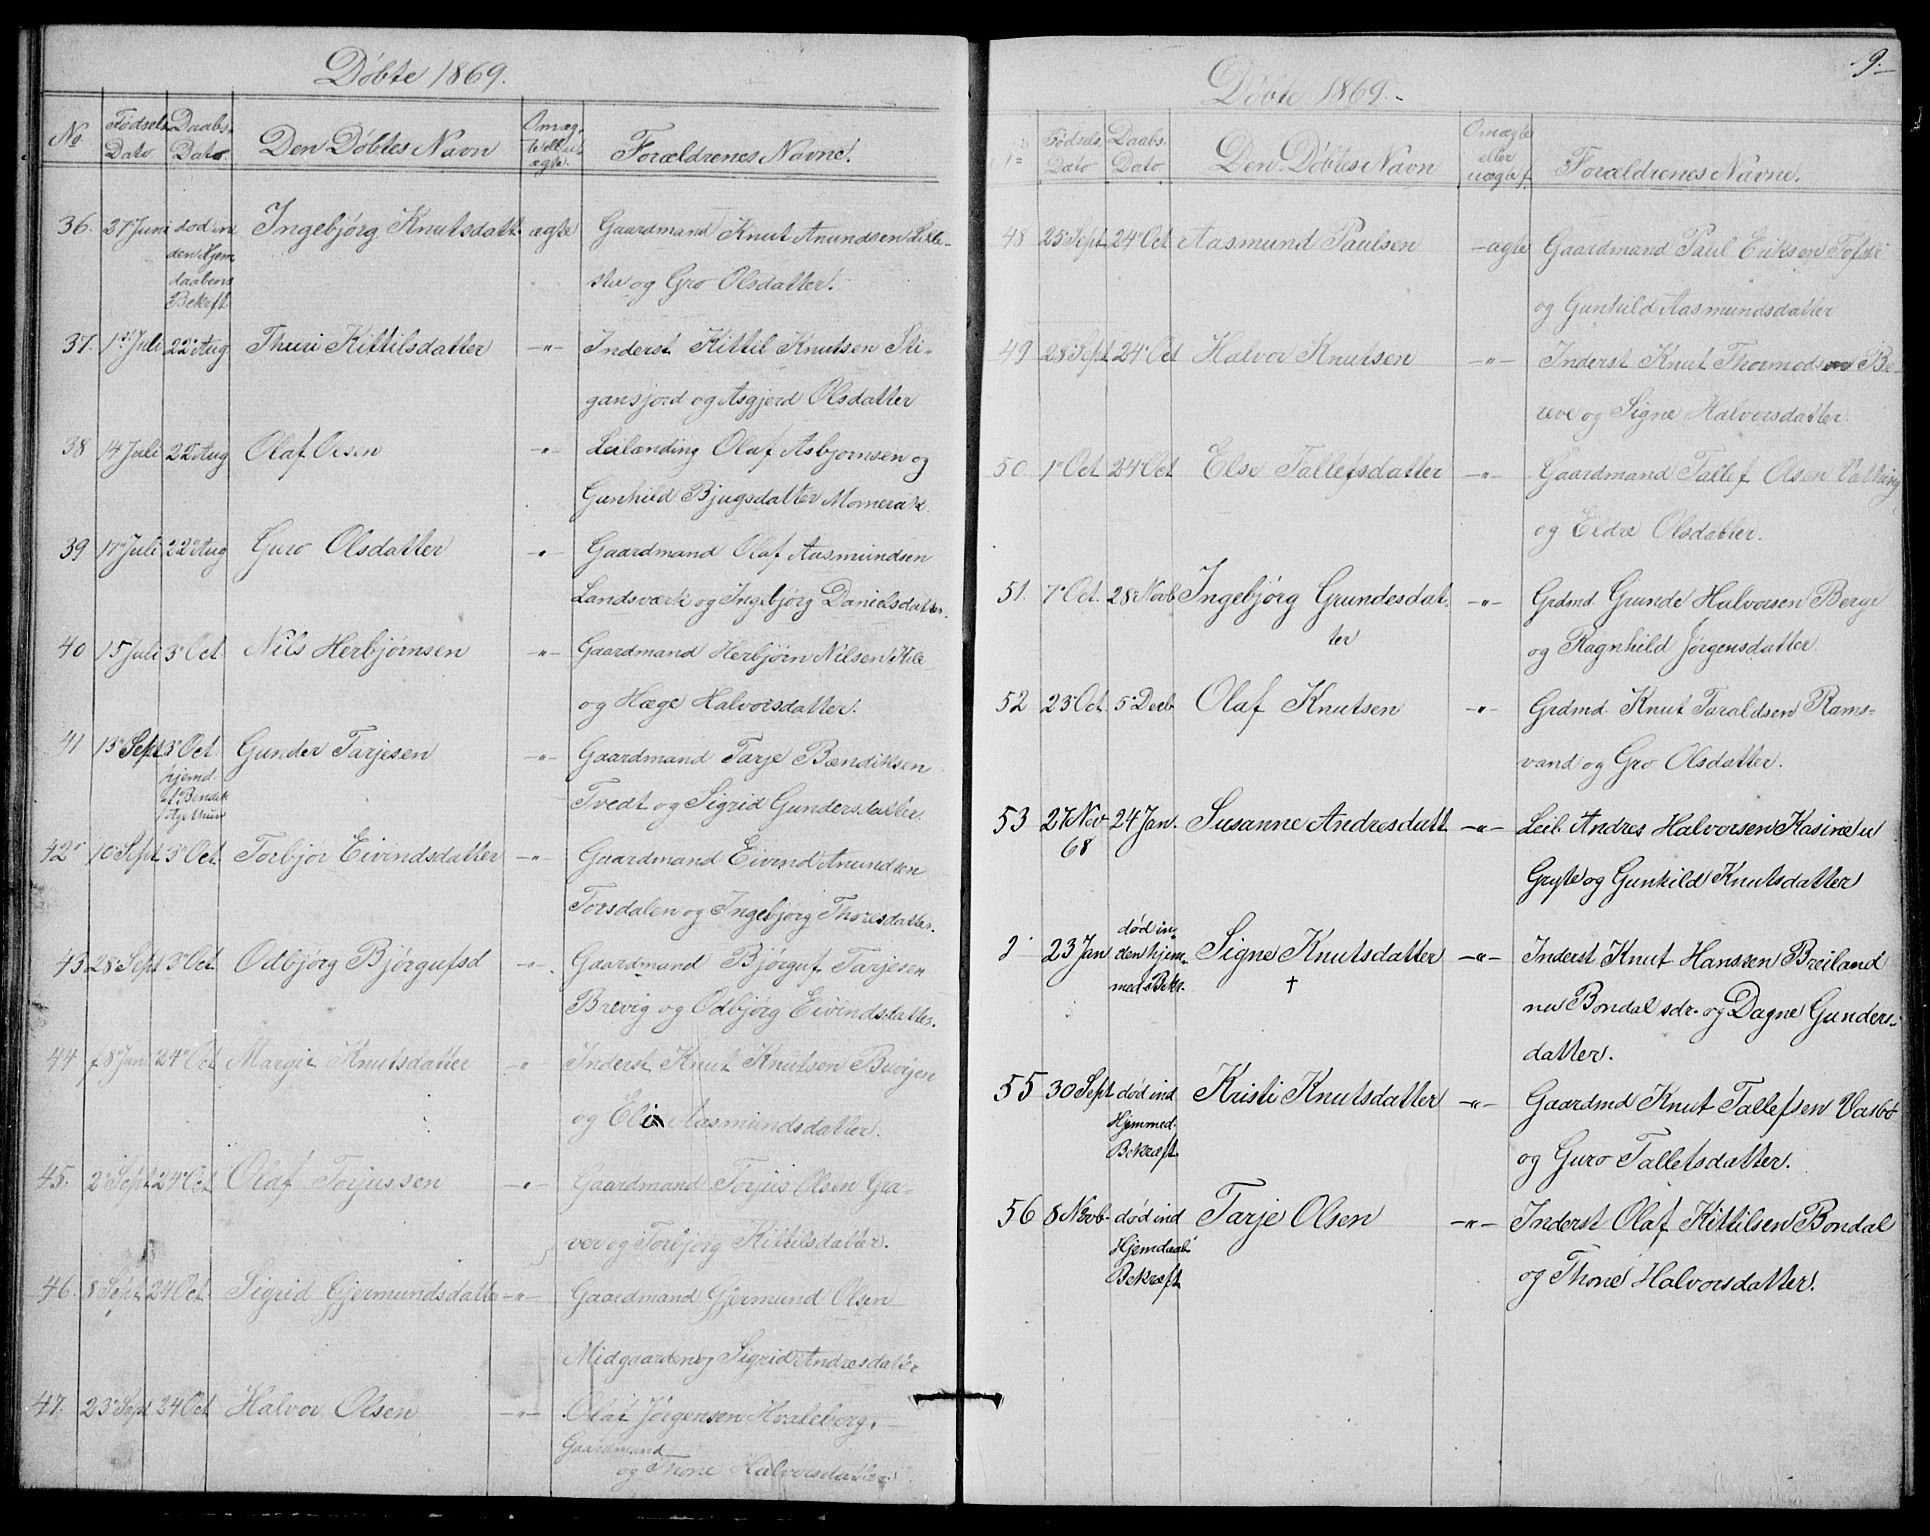 Döbte 1869.
No. Födsels Dato. Daabs- Dato Den Döbtes Navn Om æg- te ell. u- ægte. Forældrenes Navne.
36. 27 Juni död in- Ingebjörg Knutsdatt. ægte Gaardmand Knut Anundsen Lille-
den Hjem
daabens stue og Gro Olsdatter.
Bekrft.
37. 1 Juli 22 Aug Thuri Kittilsdatter -"- Inderst Kittil Knutsen Sti-
gansjord og Asgjerd Olsdatter.
38 14 Juli 22 Aug Olaf Olsen -"- Leilænding Olaf Asbjornsen og
Gunhild Bjugsdatter Momerak.
39 17 Juli 22 Aug Guro Olsdatter -"- Gaardmand Olaf Aasmundsen
Landsværk og Ingebjörg Danielsdatter.
40 15 Juli 3 Oct Nils Herbjörnsen -"- Gaardmand Herbjörn Nilsen Kile
og Hæge Halvorsdatter.
41 13 Sept 3 Oct Gunder Tarjesen -"- Gaardmand Tarje Bændiksen
hjemd.
af Bendik Tvedt og Sigrid Gundersdatter.
42 10 Sept 3 Oct. Torbjör Eivindsdatter -"- Gaardmand Eivind Anundsen
Torsdalen og Ingebjörg Thoresdatter.
43 28 Sept 3 Oct. Odbjörg Björgufsd -"- Gaardmand Björguf Tarjesen
Brevig og Odbjörg Eivindsdatter.
44 f 8 Jun 24 Oct Margit Knutsdatter -"- Inderst Knut Knutsen
og Eli Aasmundsdatter.
45. 2 Sept 24 Oct Olaf Torjussen -"- Gaardmand Torjus Olsen Gra-
ver og Torbjörg Kittilsdatter.
46. 8 Sept 24 Oct. Sigrid Gjermundsdatter -"- Gaardmand Gjermund Olsen
Midgaarden og Sigrid Andresdatter
47. 23 Sept 24 Oct Halvor Olsen -"- Olaf Jörgensen Hvaleberg,
Gaardmand
og Thone Halvorsdatter.
9.-
Döbte 1869.-
Födsels Dato Daabs- Dato. Den Döbtes Navn Om ægte eller uægte f. Forældrenes Navne.
48 25 Sept. 24 Oct. Aasmund Paulsen -ægte Gaardmand Paul Eriksen Tofte
og Gunhild Aasmundsdatter
49 28 Sept. 24 Oct Halvor Knutsen -"- Inderst Knut Thormodsen Be-
uve og Signe Halvorsdatter.
50 1 Oct 24 Oct Else Tallefsdatter -"- Gaardmand Tallef Olsen
og Eldre Olsdatter.
51. 7 Oct. 28 Novb Ingebjörg Grundesdat- -"- Grdmd. Grunde Halvorsen Berge
ter og Ragnhild Jörgensdatter.
52 23 Oct 5 Decb Olaf Knutsen -"- Grdmd. Knut Taraldsen Rams-
vand og Gro Olsdatter.
53 27 Nov 24 Jan. Susanne Andresdatt. -"- Leil. Andres Halvorsen Kasine u
68 Gryte og Gunhild Knutsdatter
död in-
23 Jan den hjem- Signe Knutsdatter -"- Inderst Knut Hanssen Breiland
med. Bekr. † nu Bondal sdr. og Dagne Gunders-
datter.
55 30 Sept död ind Kristi Knutsdatter -"- Gaardmd Knut Tallefsen Vasbö
Hjemmed.
Bekræft. og Guro Talletsdatter.
56 8 Novb. död ind Tarje Olsen -"- Inderst Olaf Kittilsen Bondal
Hjemdaab
Bekræft. og Thone Halvorsdatter.